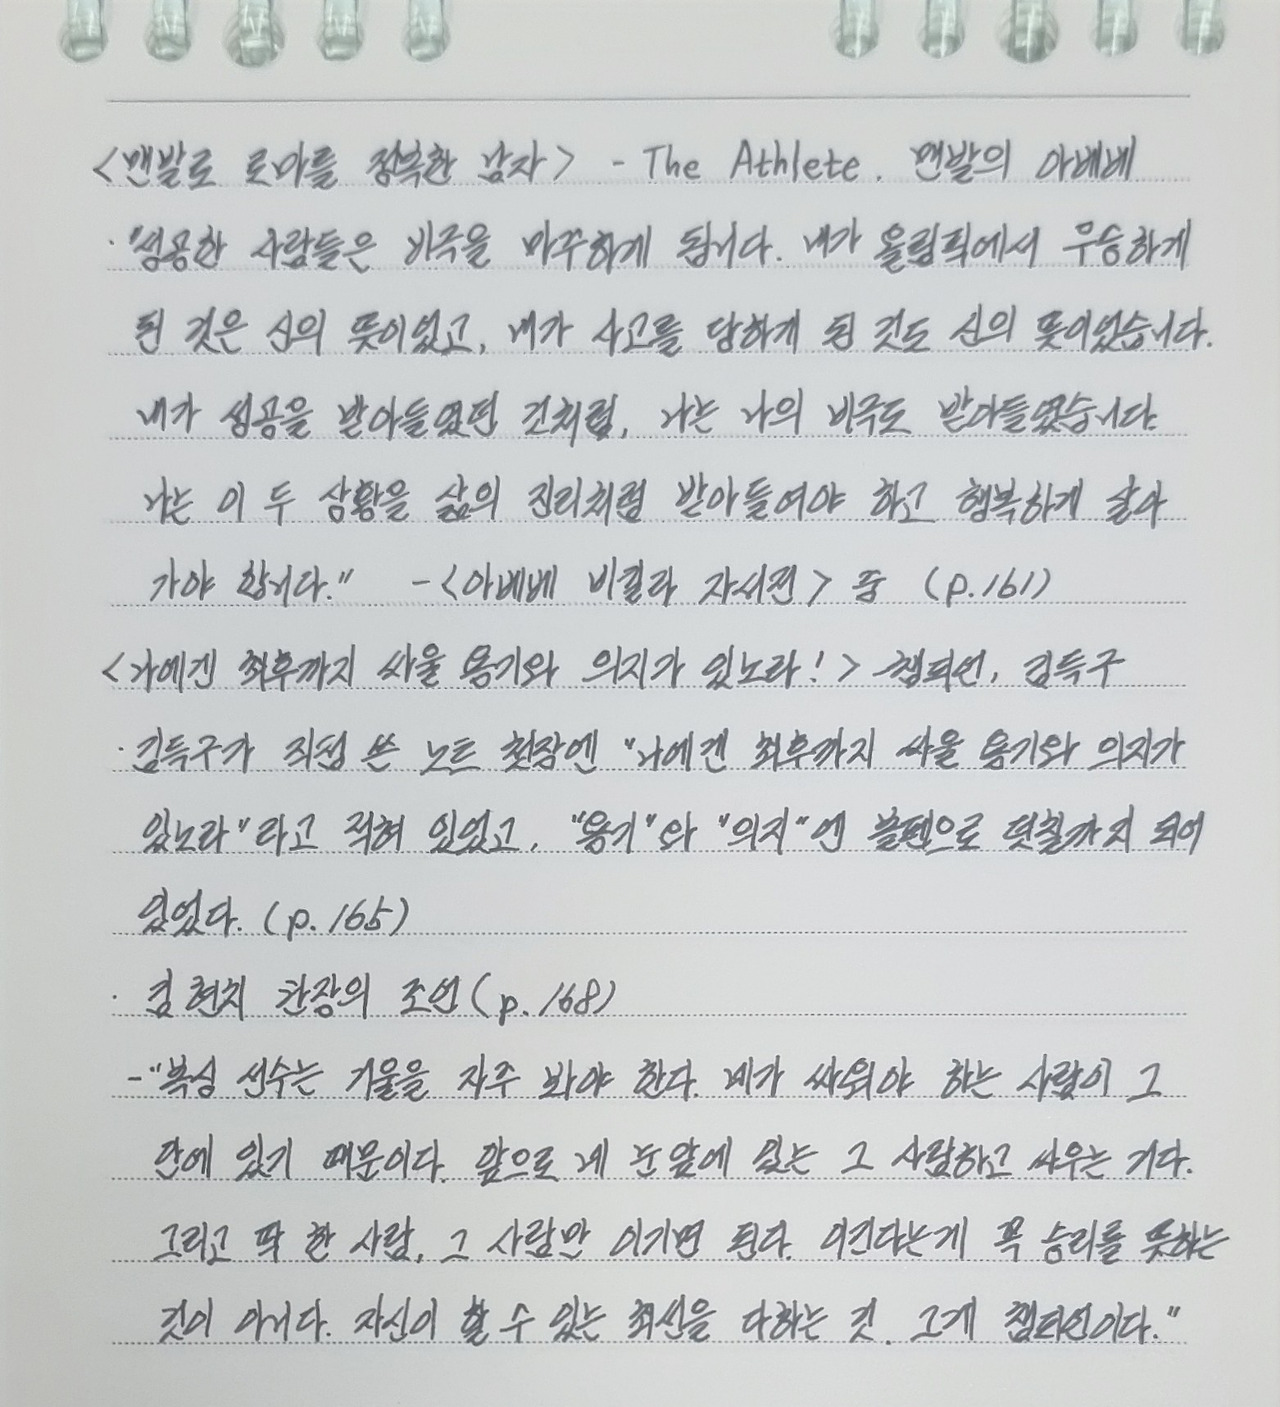 <맨발로 로마를 정복한 남자> - The Athlete. 맨발의 아베베
· "성공한 사람들은 비극을 마주하게 됩니다. 내가 올림픽에서 우승하게
된 것은 신의 뜻이었고, 내가 사고를 당하게 된 것도 신의 뜻이었습니다.
내가 성공을 받아들였던 것처럼, 나는 나의 비극도 받아들였습니다.
나는 이 두 상황을 삶의 진리처럼 받아들여야 하고 행복하게 살아
가야 합니다." -<아베베 비킬라 자서전> 중 (p.161)
<나에겐 최후까지 싸울 용기와 의지가 있노라!> -챔피언, 김득구
· 김득구가 직접 쓴 노트 첫장엔 "나에겐 최후까지 싸울 용기와 의지가
있노라"라고 적혀 있었고, "용기"와 "의지"엔 볼펜으로 덧칠까지 되어
있었다. (p.165)
· 김현치 관장의 조언(p.168)
-"복싱 선수는 거울을 자주 봐야 한다. 네가 싸워야 하는 사람이 그
안에 있기 때문이다. 앞으로 네 눈앞에 있는 그 사람하고 싸우는 거다.
그리고 딱 한 사람, 그 사람만 이기면 된다. 이긴다는게 꼭 승리를 뜻하는
것이 아니다. 자신이 할 수 있는 최선을 다하는 것. 그게 챔피언이다."